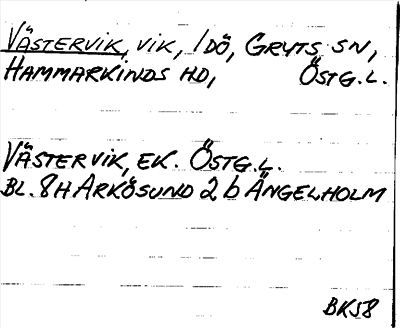 VÄSTERVIK, VIK, IDÖ, GRYTS SN,
HAMMARKINDS HD, ÖSTG.L.
VÄSTERVIK, EK. ÖSTG.L.
BL. 8H ARKÖSUND 2 b ÄNGELHOLM
BK58